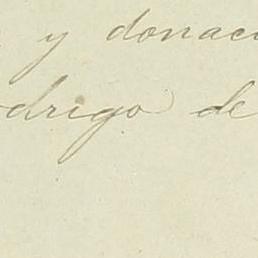 y donaci
odrigo de